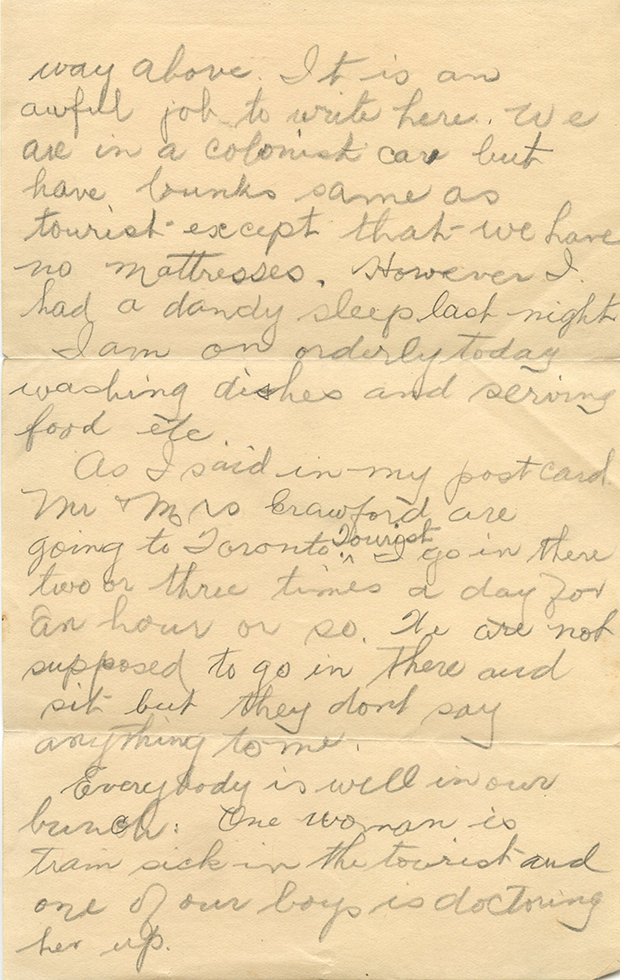 way above. It is an
awful job to write here. We
are in a colonist car but
have bunks same as
tourist except that we have
no mattresses. However I
had a dandy sleep last night
I am on orderly today
washing dishes and serving
food etc
As I said in my post card
Mr & Mrs Crawford are
going to Toronto. Tourist ^ I go in there
two or three times a day for
an hour or so. We are not
supposed to go in there and
sit but they dont say
anything to me.
Everybody is well in our
bunch. One woman is
train sick in the tourist and
one of our boys is doctoring
her up.